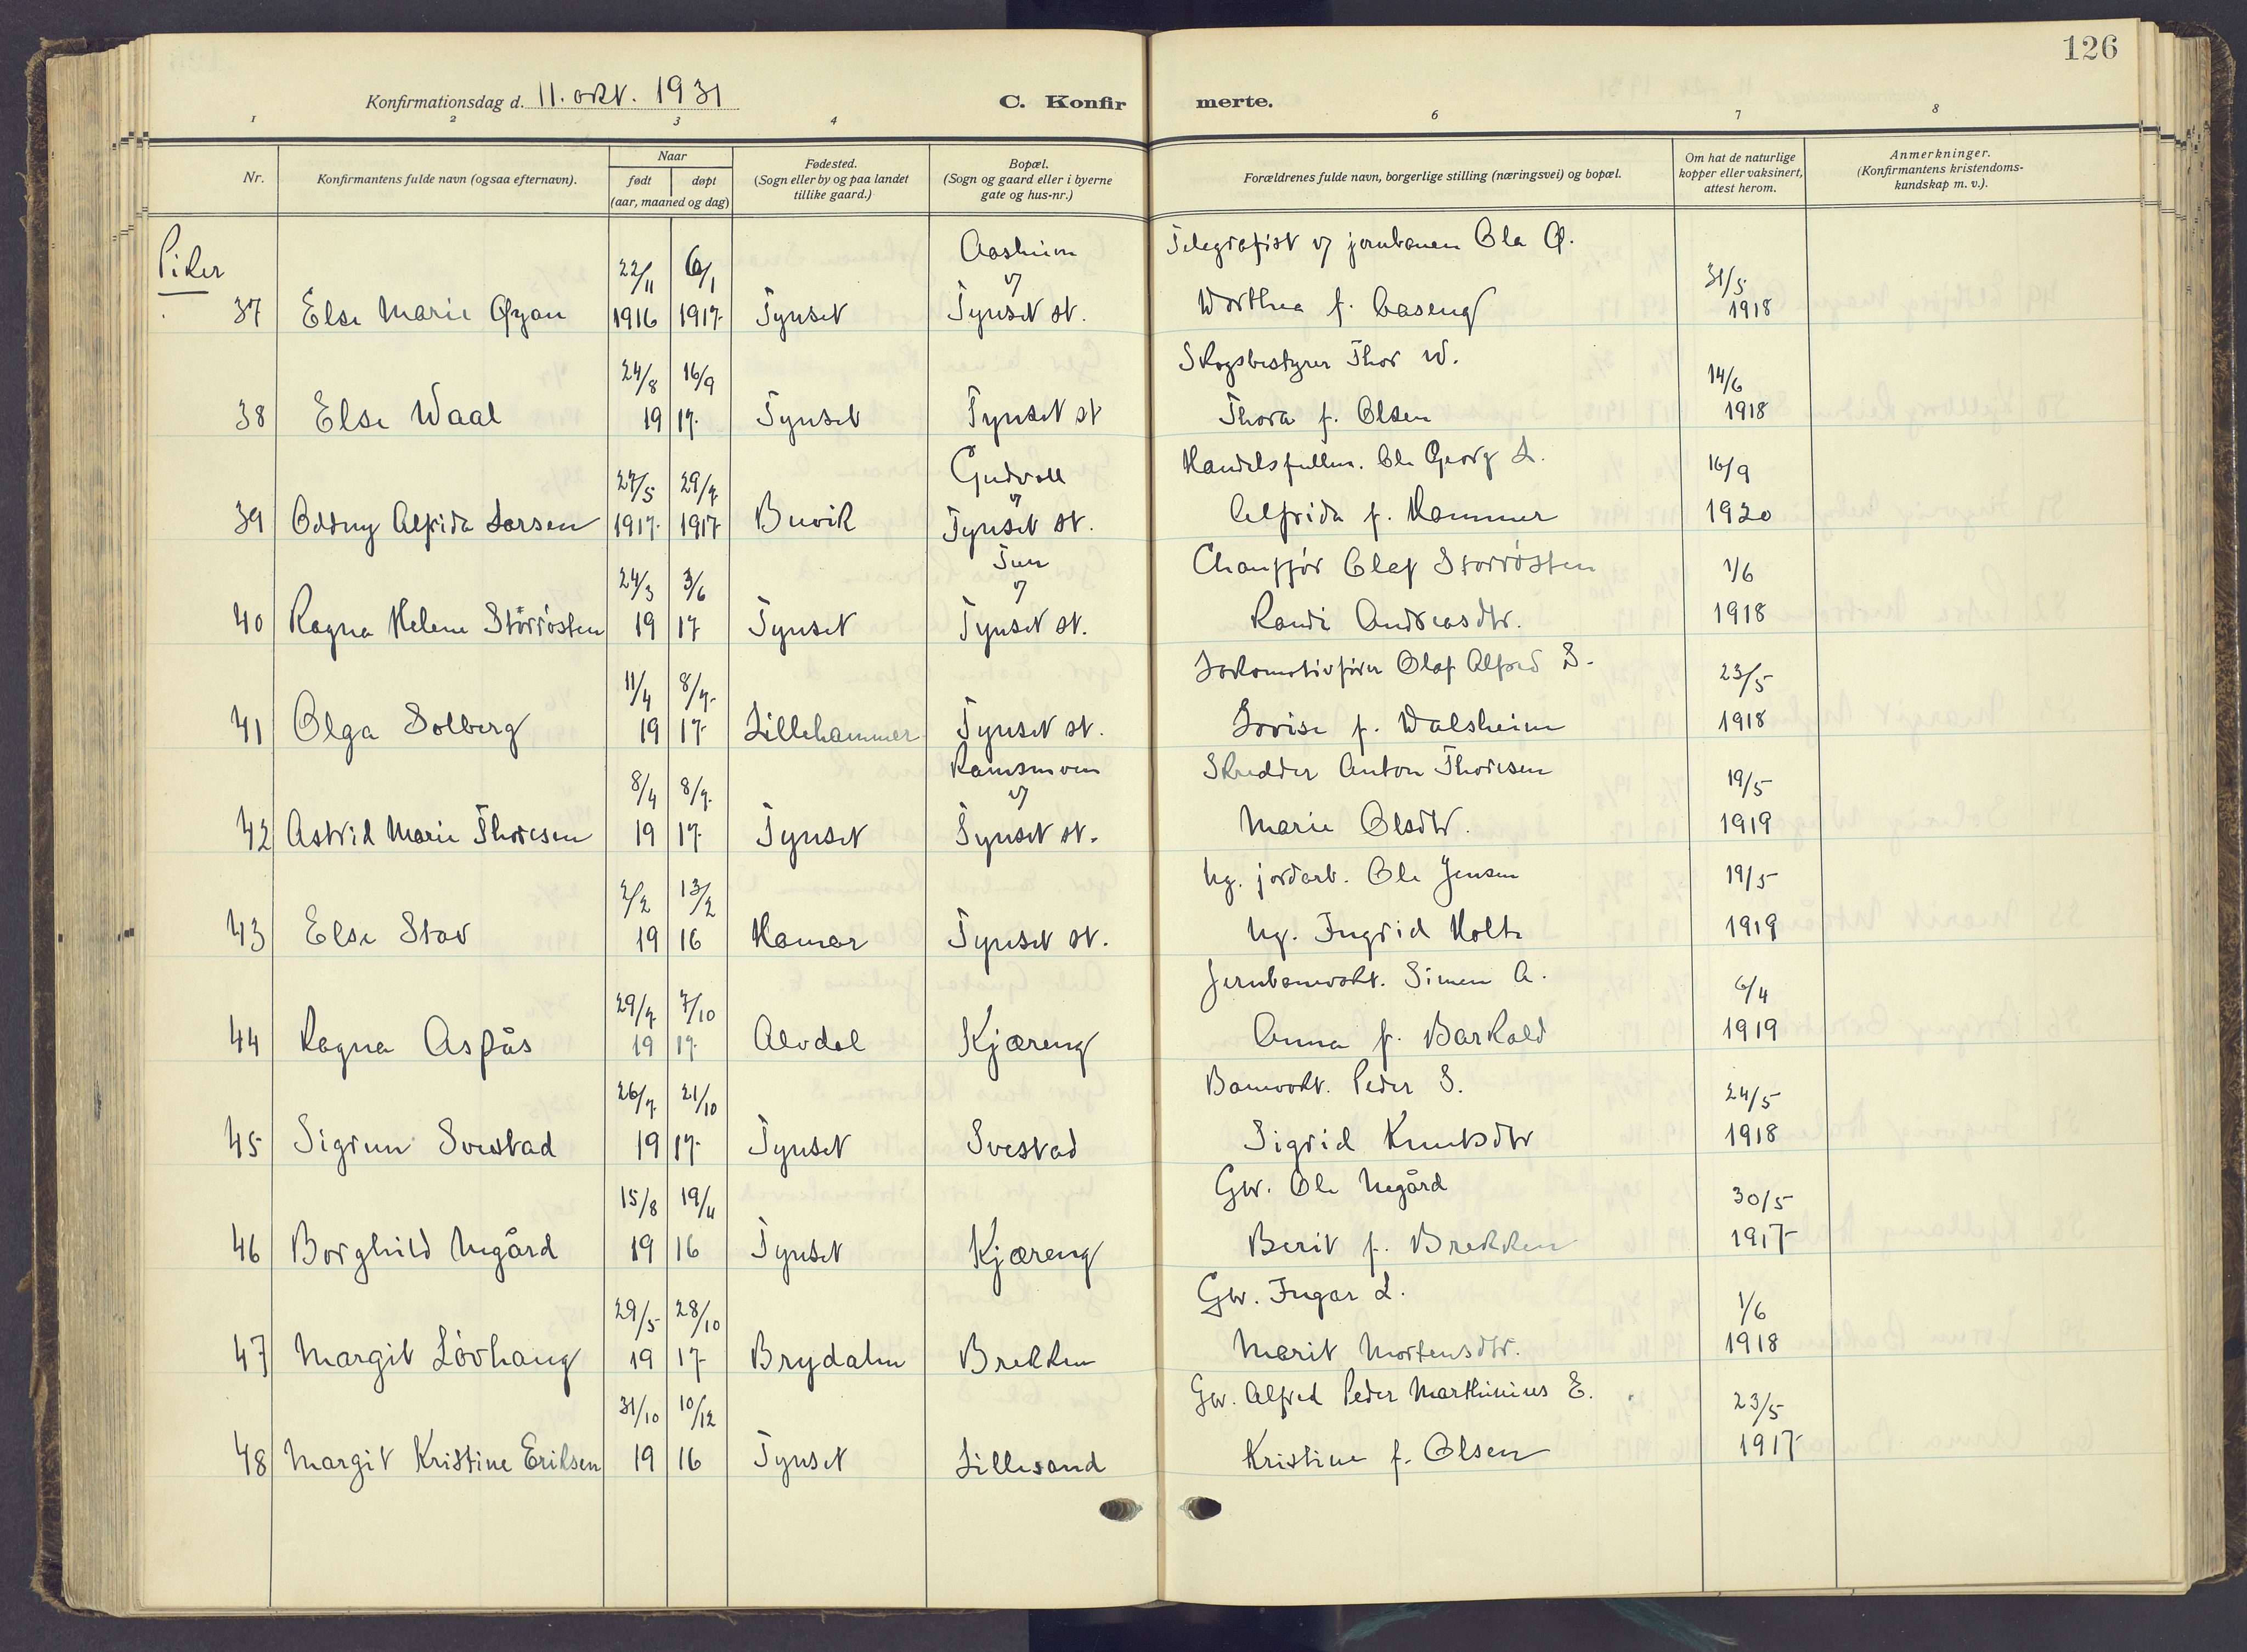 126
Konfirmationsdag d. 11. okt. 1931 C. Konfirmerte.
1 2 3 4 6 7 8
Nr. Konfirmantens fulde navn (ogsaa efternavn). Naar født døpt (aar, maaned og dag) Fødested. (Sogn eller by og paa landet tillike gaard.) Bopæl. (Sogn og gaard eller i byerne gate og hus-nr.) Forældrenes fulde navn, borgerlige stilling (næringsvei) og bopæl. Om hat de naturlige kopper eller vaksinert, attest herom. Anmerkninger. (Konfirmantens kristendoms-kundskap m. v.).
Piker
22/11 6/1 Aasheim v/ Telegrafist v/ jernbanen Ola Ø. 31/5
37 Else Marie Øyan 1916 1917 Tynset Tynset st. Dorthea f. Aaseng 1918
24/8 16/9 Skogsbestyrer Thor W. 14/6
38 Else Waal 19 17 Tynset Tynset st Thora f. Olsen 1918
27/5 29/7 Gudvoll v/ Handelsfullm. Ole Georg L. 16/9
39 Oddny Alfrida Larsen 1917 1917 Buvik Tynset st. Alfrida f. Hammer 1920
24/3 3/6 Tun v/ Chauffør Olaf Storrøsten 1/6
40 Ragna Helene Storrøsten 19 17 Tynset Tynset st. Randi Andreasdtr. 1918
11/4 8/7 Lokomotivfører Olaf Alfred S. 23/5
41 Olga Solberg 19 17 Lillehammer Tynset st. Lovise f. Dalsheim 1918
8/4 8/7 Ramsmoen v/ Skredder Anton Thoresen 19/5
42 Astrid Marie Thoresen 19 17 Tynset Tynset st. Marie Olsdtr. 1919
2/2 13/2 Ug. jordarb. Ole Jensen 19/5
43 Else Stav 19 16 Hamar Tynset st. Ug. Ingrid Holte 1919
29/7 7/10 Jernbanevokt. Simen A. 6/4
44 Ragna Aspås 19 17 Alvdal Kjæreng Anna f. Barkald 1919
26/7 21/10 Banevokt. Peder S. 24/5
45 Sigrun Svestad 19 17 Tynset Svestad Sigrid Knutsdtr 1918
15/8 19/11 Gbr. Ole Negård 30/5
46 Borghild Negård 19 16 Tynset Kjæreng Berit f. Brekken 1917
29/5 28/10 Gbr. Ingar L. 1/6
47 Margit Løvhaug 19 17 Brydalen Brekken Marit Mortensdtr. 1918
31/10 10/12 Gbr. Alfred Peder Marthinius E. 23/5
48 Margit Kristine Eriksen 19 16 Tynset Lillesand Kristine f. Olsen 1917